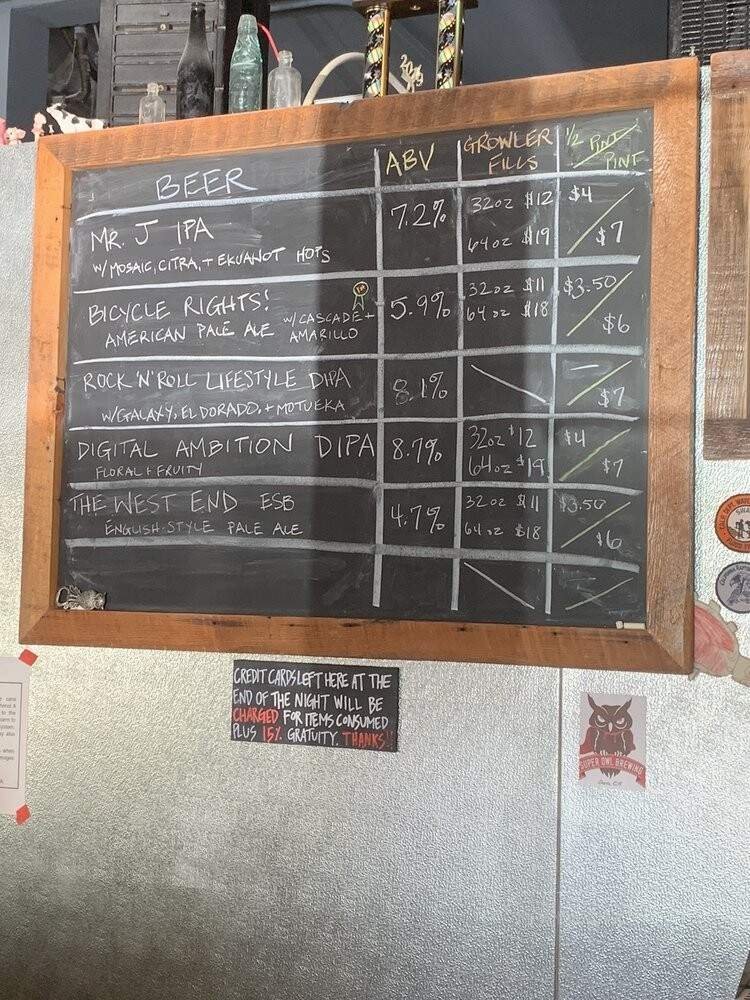 BEER
ABV
GROWLER FILLS
1/2 PINT / PINT
MR. J IPA
W/ MOSAIC, CITRA, + EKUANOT HOPS
7.2%
32oz $12
64oz $19
$4 / $7
BICYCLE RIGHTS!
AMERICAN PALE ALE W/ CASCADE +
AMARILLO
5.9%
32oz $11
64oz $18
$3.50 / $6
ROCK 'N' ROLL LIFESTYLE DIPA
W/GALAXY, EL DORADO, + MOTUEKA
8.1%
— / $7
DIGITAL AMBITION DIPA
FLORAL + FRUITY
8.7%
32oz $12
64oz $19
$4 / $7
THE WEST END ESB
ENGLISH-STYLE PALE ALE
4.7%
32oz $11
64oz $18
$3.50 / $6
CREDIT CARDS LEFT HERE AT THE
END OF THE NIGHT WILL BE
CHARGED FOR ITEMS CONSUMED
PLUS 15% GRATUITY. THANKS!!
SUPER OWL BREWING